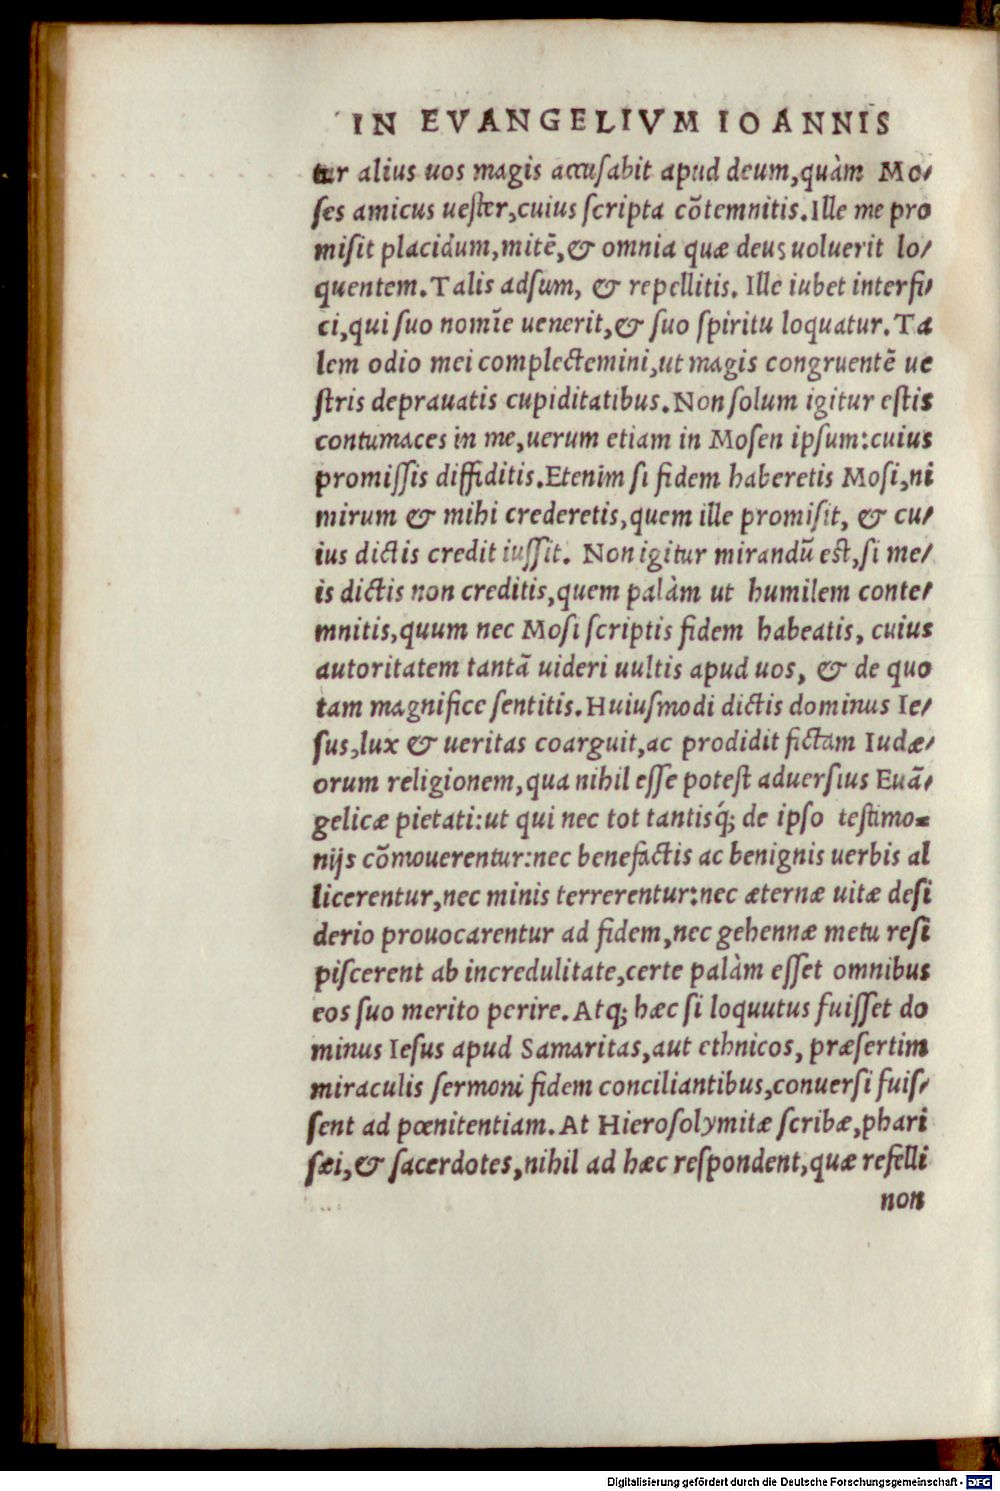 IN EVANGELIVM IOANNIS
tur alius uos magis accusabit apud deum,quàm Mo-
ſes amicus ueſter,cuius ſcripta cõtemnitis.Ille me pro
miſit placidum,mitẽ,& omnia quæ deus uoluerit lo-
quentem.Talis adſum, & repellitis. Ille iubet interfi-
ci,qui ſuo nomĩe uenerit,& ſuo ſpiritu loquatur.Ta
lem odio mei complectemini,ut magis congruentẽ ue
ſtris deprauatis cupiditatibus.Non ſolum igitur eſtis
contumaces in me,uerum etiam in Moſen ipſum:cuius
promiſſis diffiditis.Etenim ſi fidem haberetis Moſi,ni
mirum & mihi crederetis,quem ille promiſit, & cu-
ius dictis credit iuſſit. Non igitur mirandũ eſt,ſi me-
is dictis non creditis,quem palàm ut humilem conte-
mnitis,quum nec Moſi ſcriptis fidem habeatis, cuius
autoritatem tantã uideri uultis apud uos, & de quo
tam magnifice ſentitis.Huiuſmodi dictis dominus Ie-
ſus,lux & ueritas coarguit,ac prodidit fictam Iudæ-
orum religionem,qua nihil eſſe poteſt aduerſius Euã-
gelicæ pietati:ut qui nec tot tantisq́; de ipſo teſtimo-
nijs cõmouerentur:nec benefactis ac benignis uerbis al
licerentur,nec minis terrerentur:nec æternæ uitæ deſi
derio prouocarentur ad fidem,nec gehennæ metu reſi
piſcerent ab incredulitate,certe palàm eſſet omnibus
eos ſuo merito perire.Atq; hæc ſi loquutus fuiſſet do
minus Ieſus apud Samaritas,aut ethnicos, præſertim
miraculis ſermoni fidem conciliantibus,conuerſi fuiſ-
ſent ad pœnitentiam.At Hieroſolymitæ ſcribæ,phari
ſæi,& ſacerdotes,nihil ad hæc reſpondent,quæ refelli
non
Digitalisierung gefördert durch die Deutsche Forschungsgemeinschaft - DFG